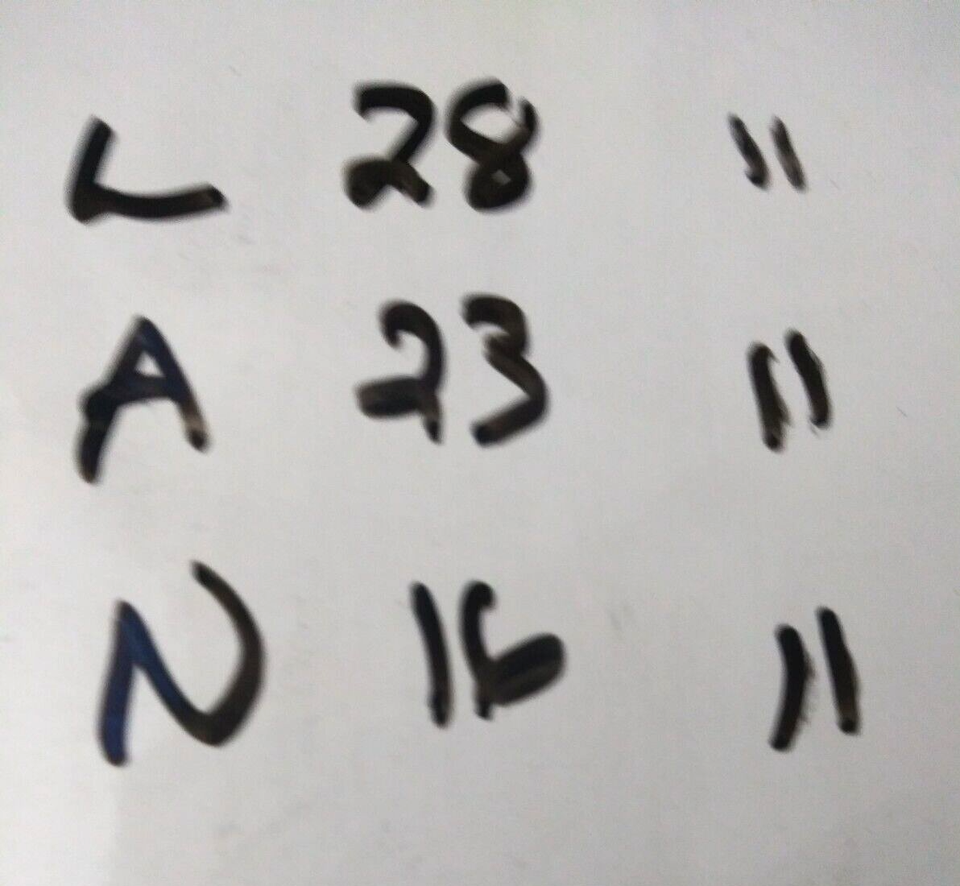 L 28 "
A 23 "
N 16 "